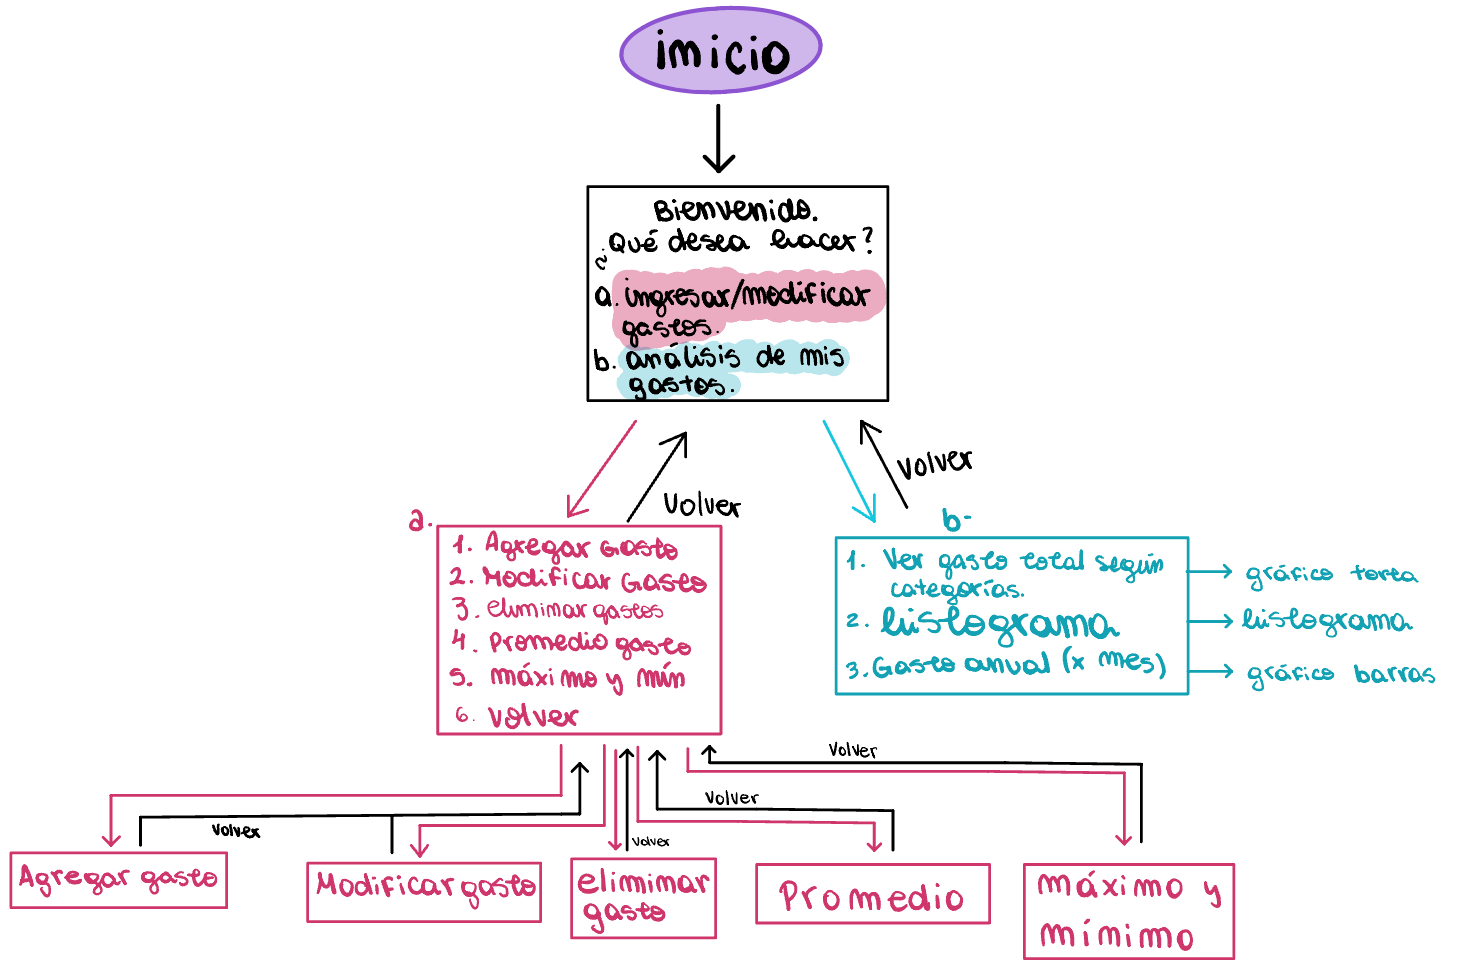 inicio
Bienvenido.
¿Qué desea hacer?
a. ingresar/modificar
gastos.
b. análisis de mis
gastos.
Volver
Volver
a.
1. Agregar Gasto
2. Modificar Gasto
3. eliminar gastos
4. Promedio gasto
5. máximo y mín
6. volver
b-
1. Ver gasto total según
categorías.
2. histograma
3. Gasto anual (x mes)
gráfico torta
histograma
gráfico barras
Volver
Volver
Volver
Volver
Agregar gasto
Modificar gasto
eliminar
gasto
Promedio
máximo y
mínimo